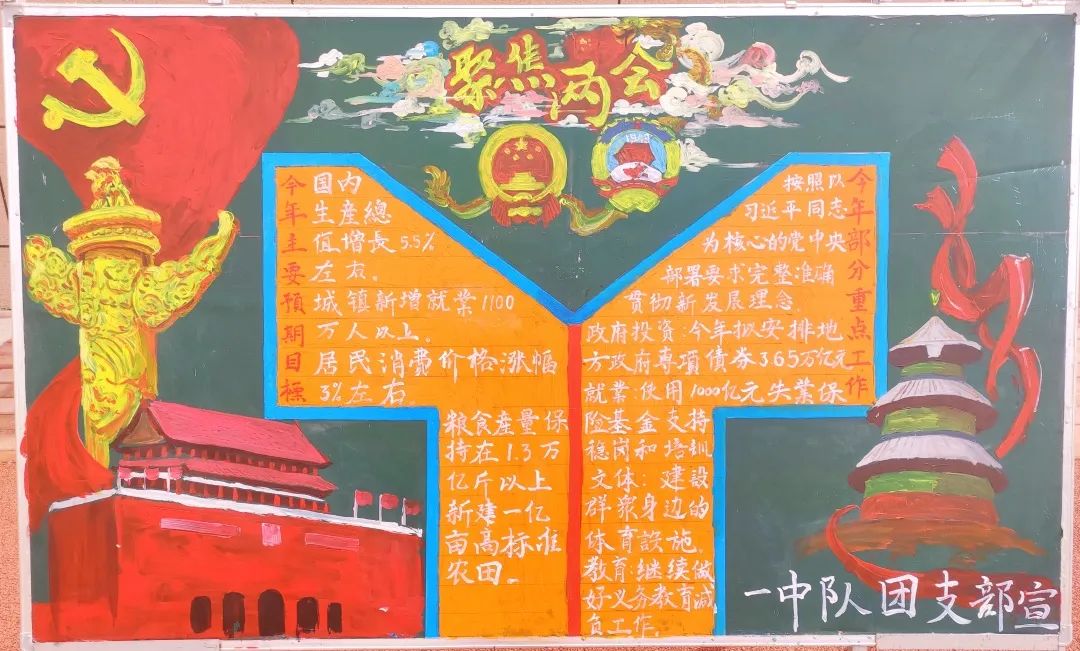 聚焦两会
1949
今年主要預期目標
国内
生産總
值增長 5.5%
左右。
城镇新增就業1100
万人以上。
居民消费价格涨幅
3%左右
粮食産量保
持在1.3万
亿斤以上
新建一亿
亩高标准
农田。
今年部分重点工作
按照以
习近平同志
为核心的党中央
部署要求完整准确
贯彻新发展理念.
政府投资:今年拟安排地
方政府専項债券3.65万亿元
就業:使用1000亿元失業保
险基金支持
稳岗和培训
文体:建設
群衆身边的
体育設施.
教育:继续做
好义务教育减
负工作.
一中队团支部宣